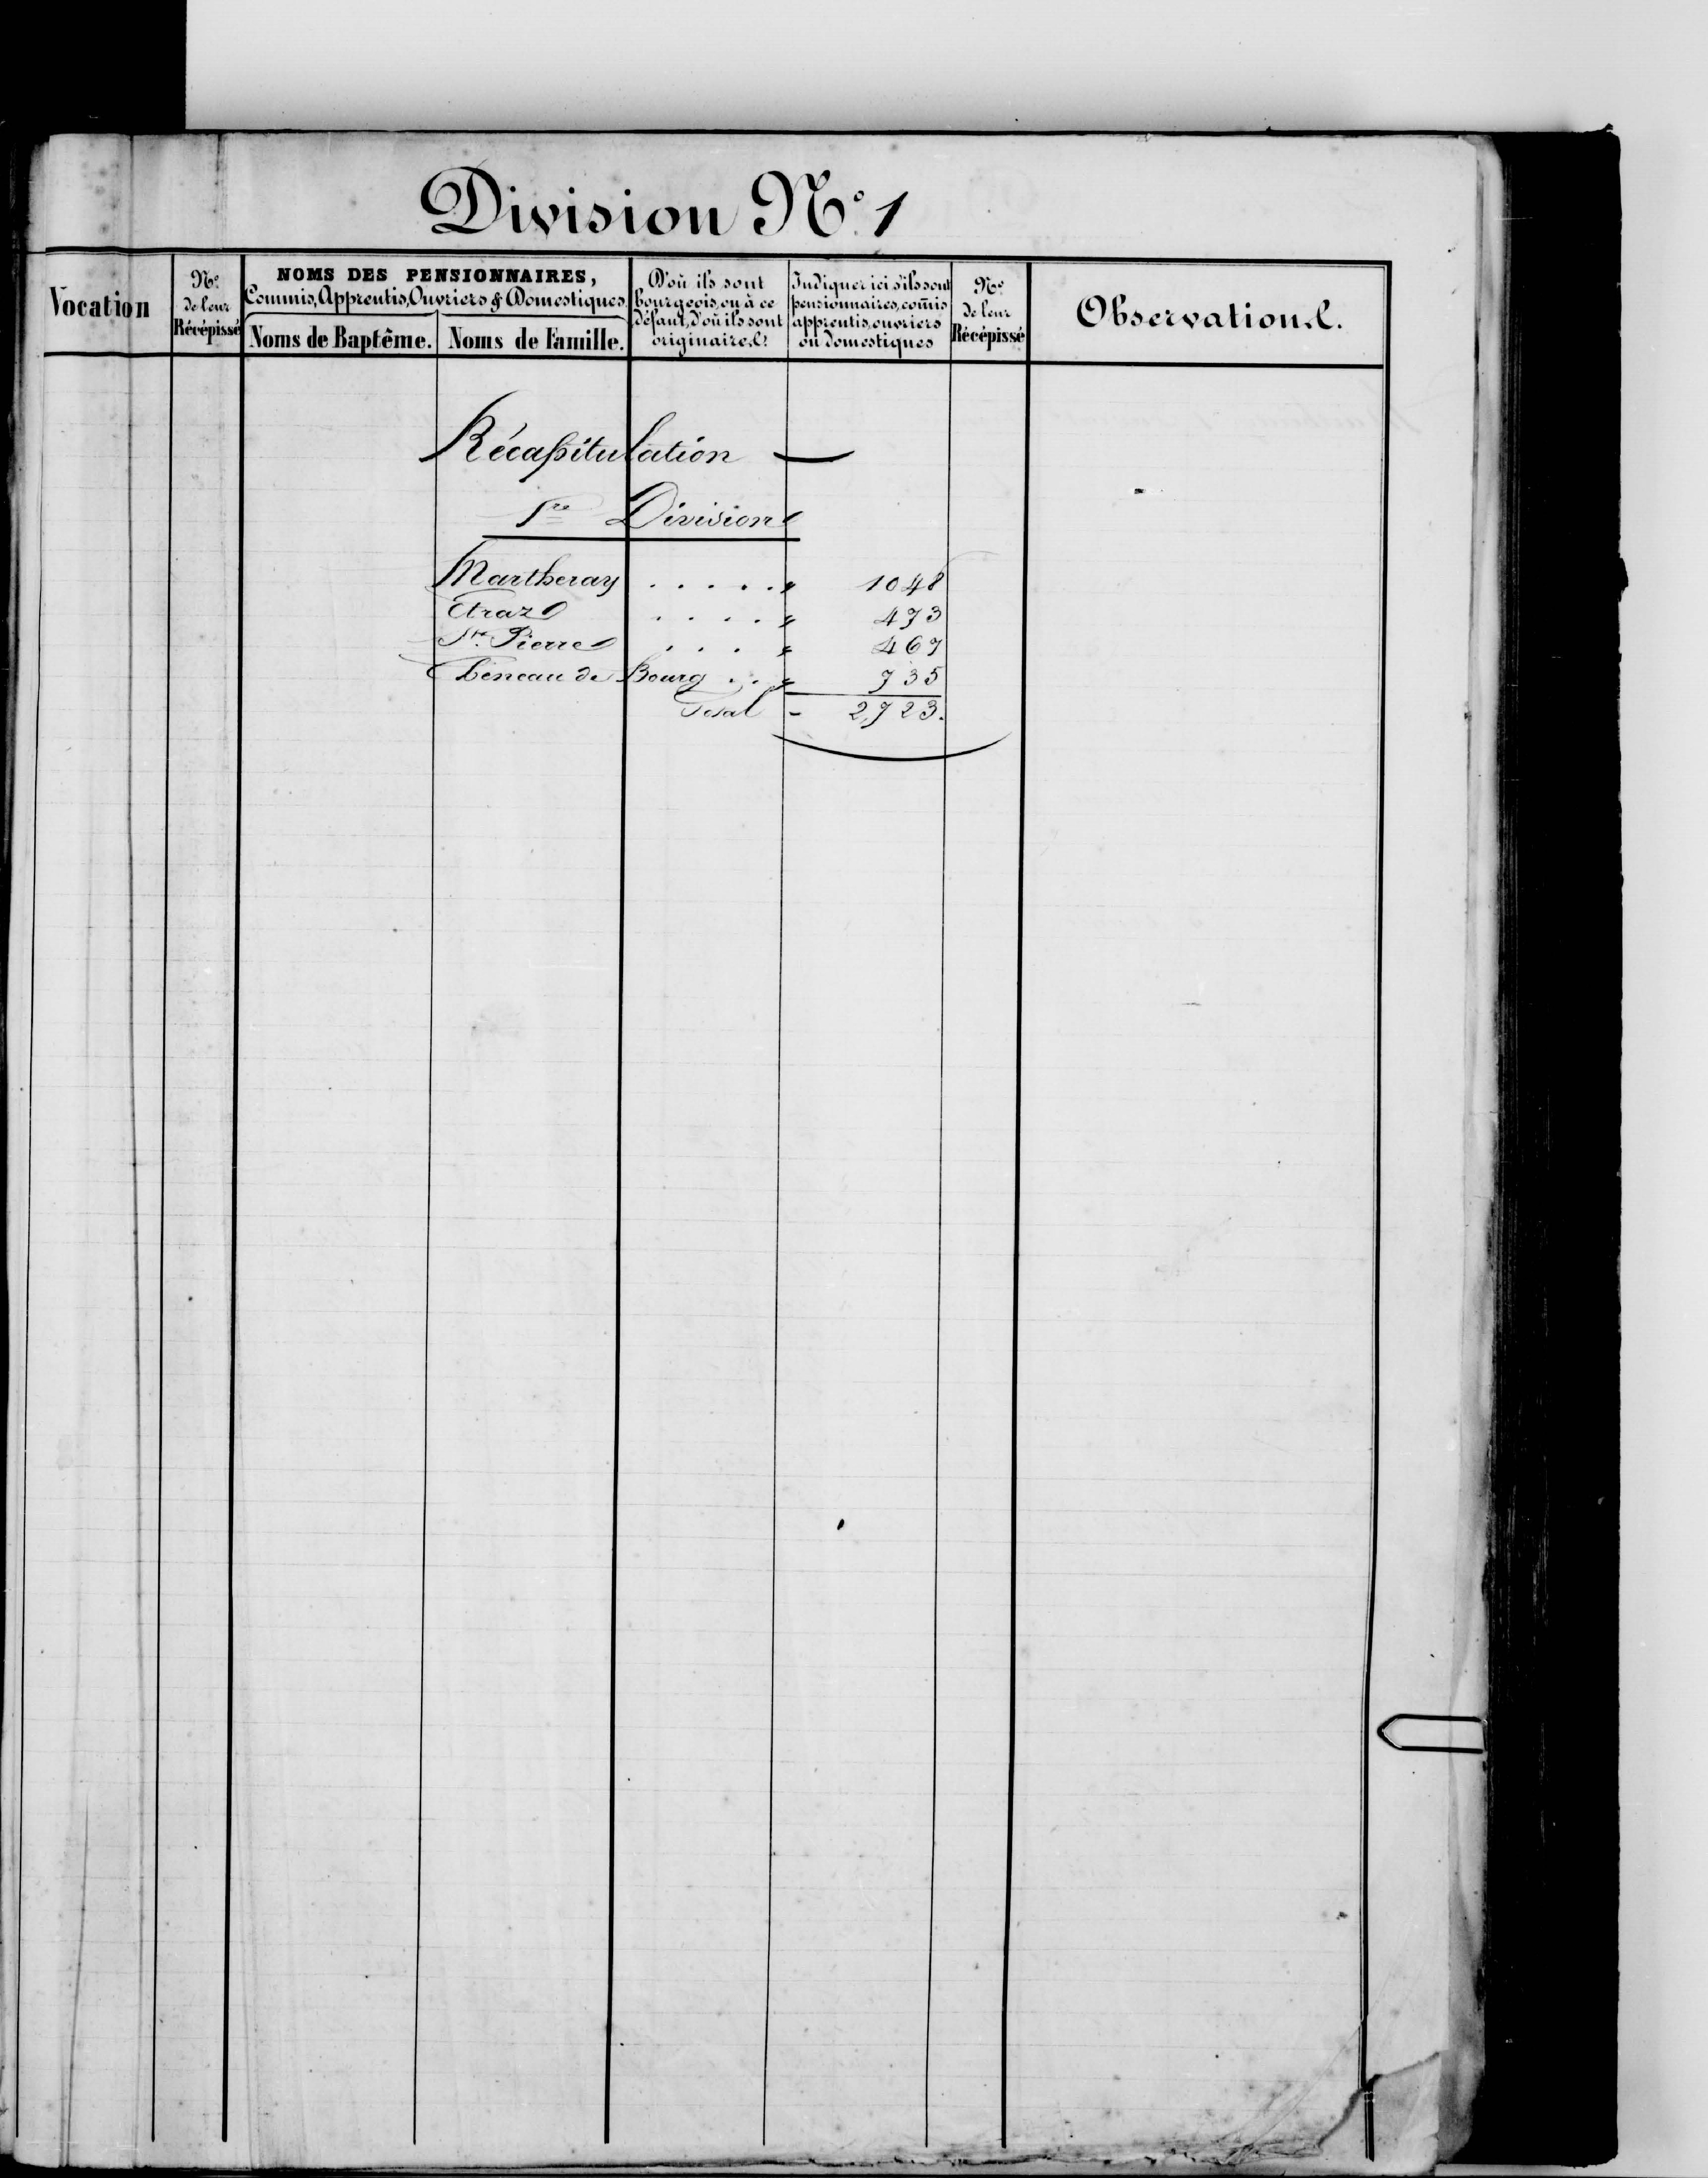 Division No. 1
Vocation
No.
de leur
Récépissé
NOMS DES PENSIONNAIRES,
Commis, Apprentis, Ouvriers & Domestiques.
Noms de Baptême.
Noms de Famille.
D'où ils sont
bourgeois, ou à ce
défaut, d'où ils sont
originaires.
Indiquer ici s'ils sont
pensionnaires, com̄is
apprentis, ouvriers
ou domestiques
No.
de leur
Récépissé
Observations.
Récapitulation —
1re Division
Martheray . . . . . " 1048
Etraz . . . . " 473
St. Pierre . . . " 467
Chéneau de Bourg . . " 735
Total - 2,723.